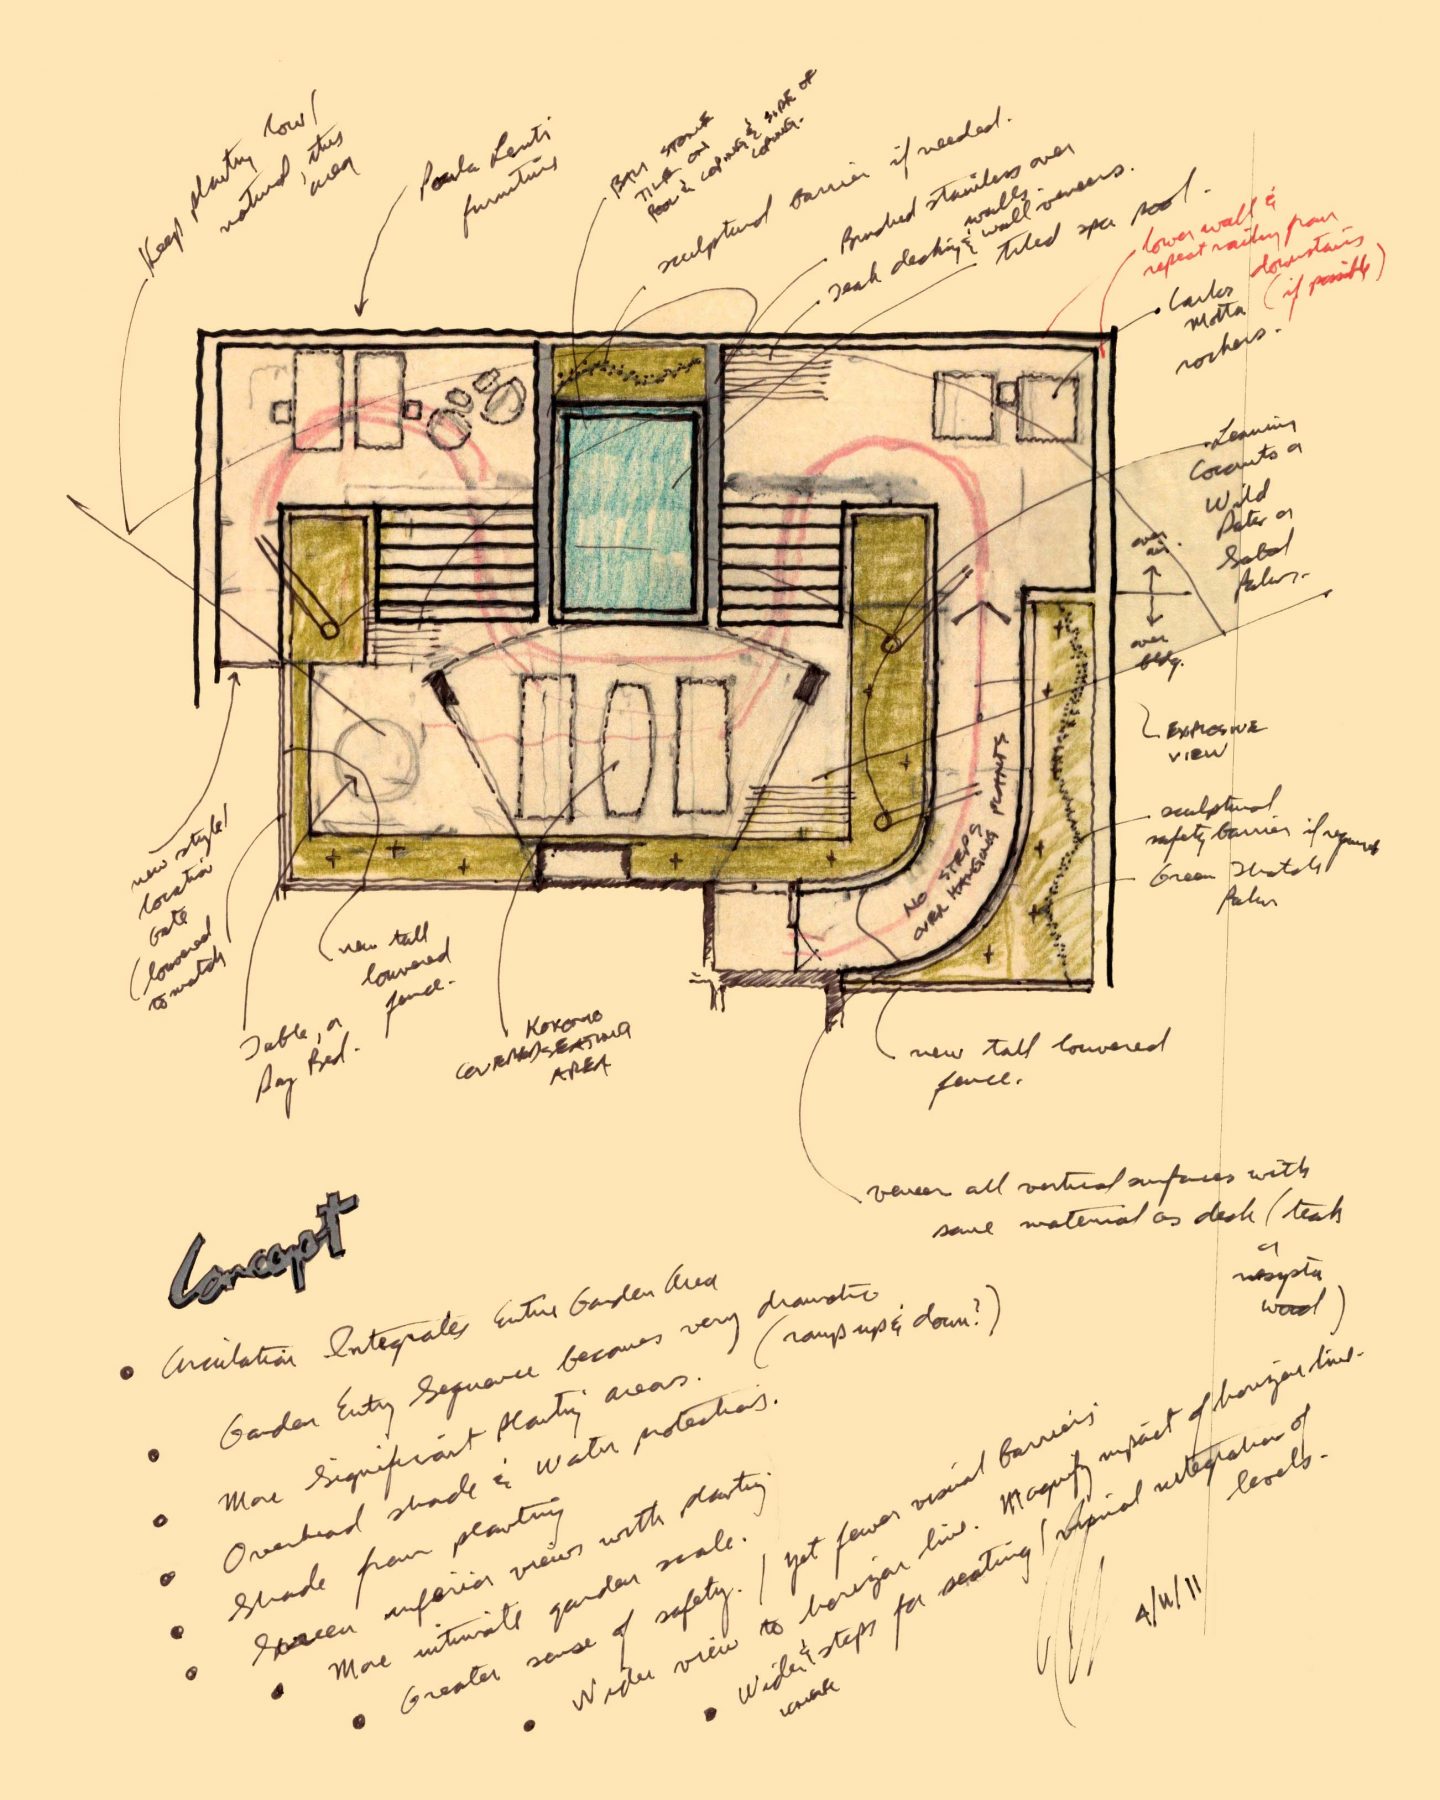 Keep planting low/
natural, this
area
Paola Lenti
furniture
Bali stone
tile on
pool & coping & side of
coping.
sculptural barrier if needed.
Brushed stainless over
walls.
teak decking & wall veneers.
tiled spa pool.
lower wall &
repeat railing from
downstairs
(if possible)
Carlos
Motta
rockers.
Leaning
Coconuts or
Wild
Date or
Sabal
Palms.
over
over
bldg.
EXPLOSIVE
VIEW
sculptural
safety barrier if required
Green Thatch
Palm
NO STEPS
OVER HANGING PLANTS
new style/
location
Gate
(louvered
to match
Table, or
Day Bed.
new tall
louvered
fence.
KOKOMO
COVERED SEATING
AREA
new tall louvered
fence.
veneer all vertical surfaces with
same material as deck (teak
or
wood)
Concept
• Circulation Integrates Entire Garden Area
• Garden Entry Sequence becomes very dramatic
(ramp up & down?)
• More Significant Planting areas.
• Overhead shade & Water protection.
• Shade from planting
• Screen inferior views with planting
• More intimate garden scale.
• Greater sense of safety. / yet fewer visual barriers
• Wider view to horizon line. Magnify impact of horizon line.
• Wider & steps for seating / visual integration of
levels.
4/11/11